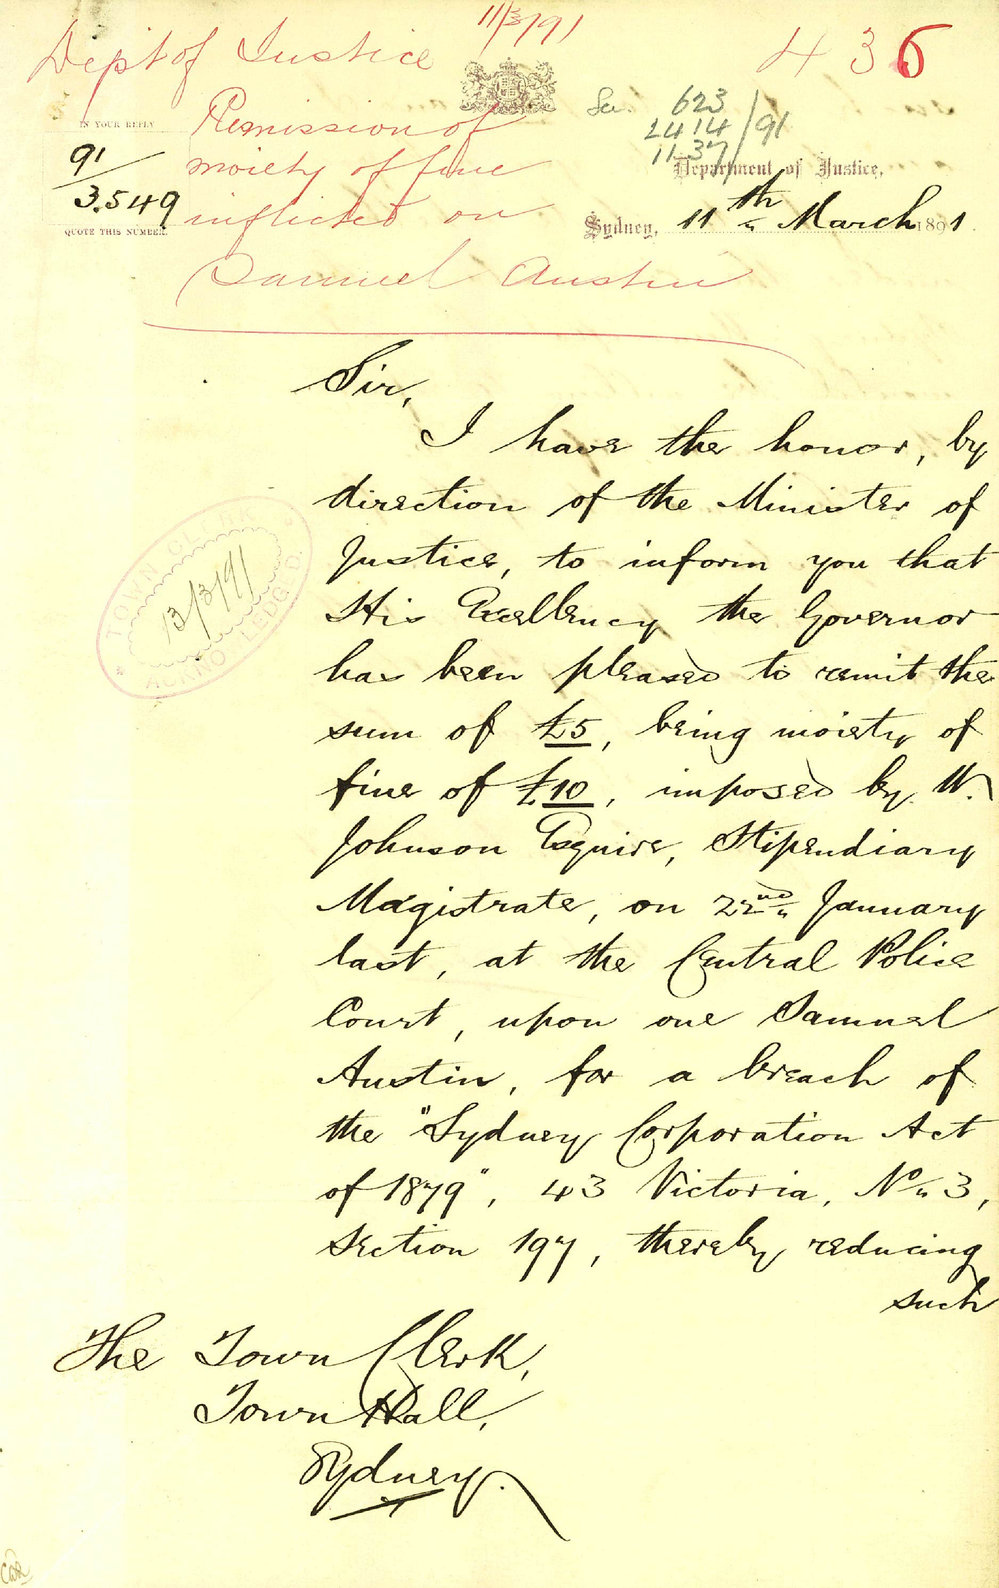 11/3/91
Dept of Justice
436
Remission of
moiety of fine
inflicted on
Samuel Austin
IN YOUR REPLY
91/3.549
QUOTE THIS NUMBER.
623
2414 /91
1137
Department of Justice,
Sydney, 11th March 1891.
TOWN CLERK
13/3/91
ACKNOWLEDGED
Sir,
I have the honor, by
direction of the Minister of
Justice, to inform you that
His Excellency the Governor
has been pleased to remit the
sum of £5, being moiety of
fine of £10, imposed by W.
Johnson Esquire, Stipendiary
Magistrate, on 22nd January
last, at the Central Police
Court, upon one Samuel
Austin, for a breach of
the "Sydney Corporation Act
of 1879", 43 Victoria, No 3,
Section 197, thereby reducing
such
The Town Clerk,
Town Hall,
Sydney.